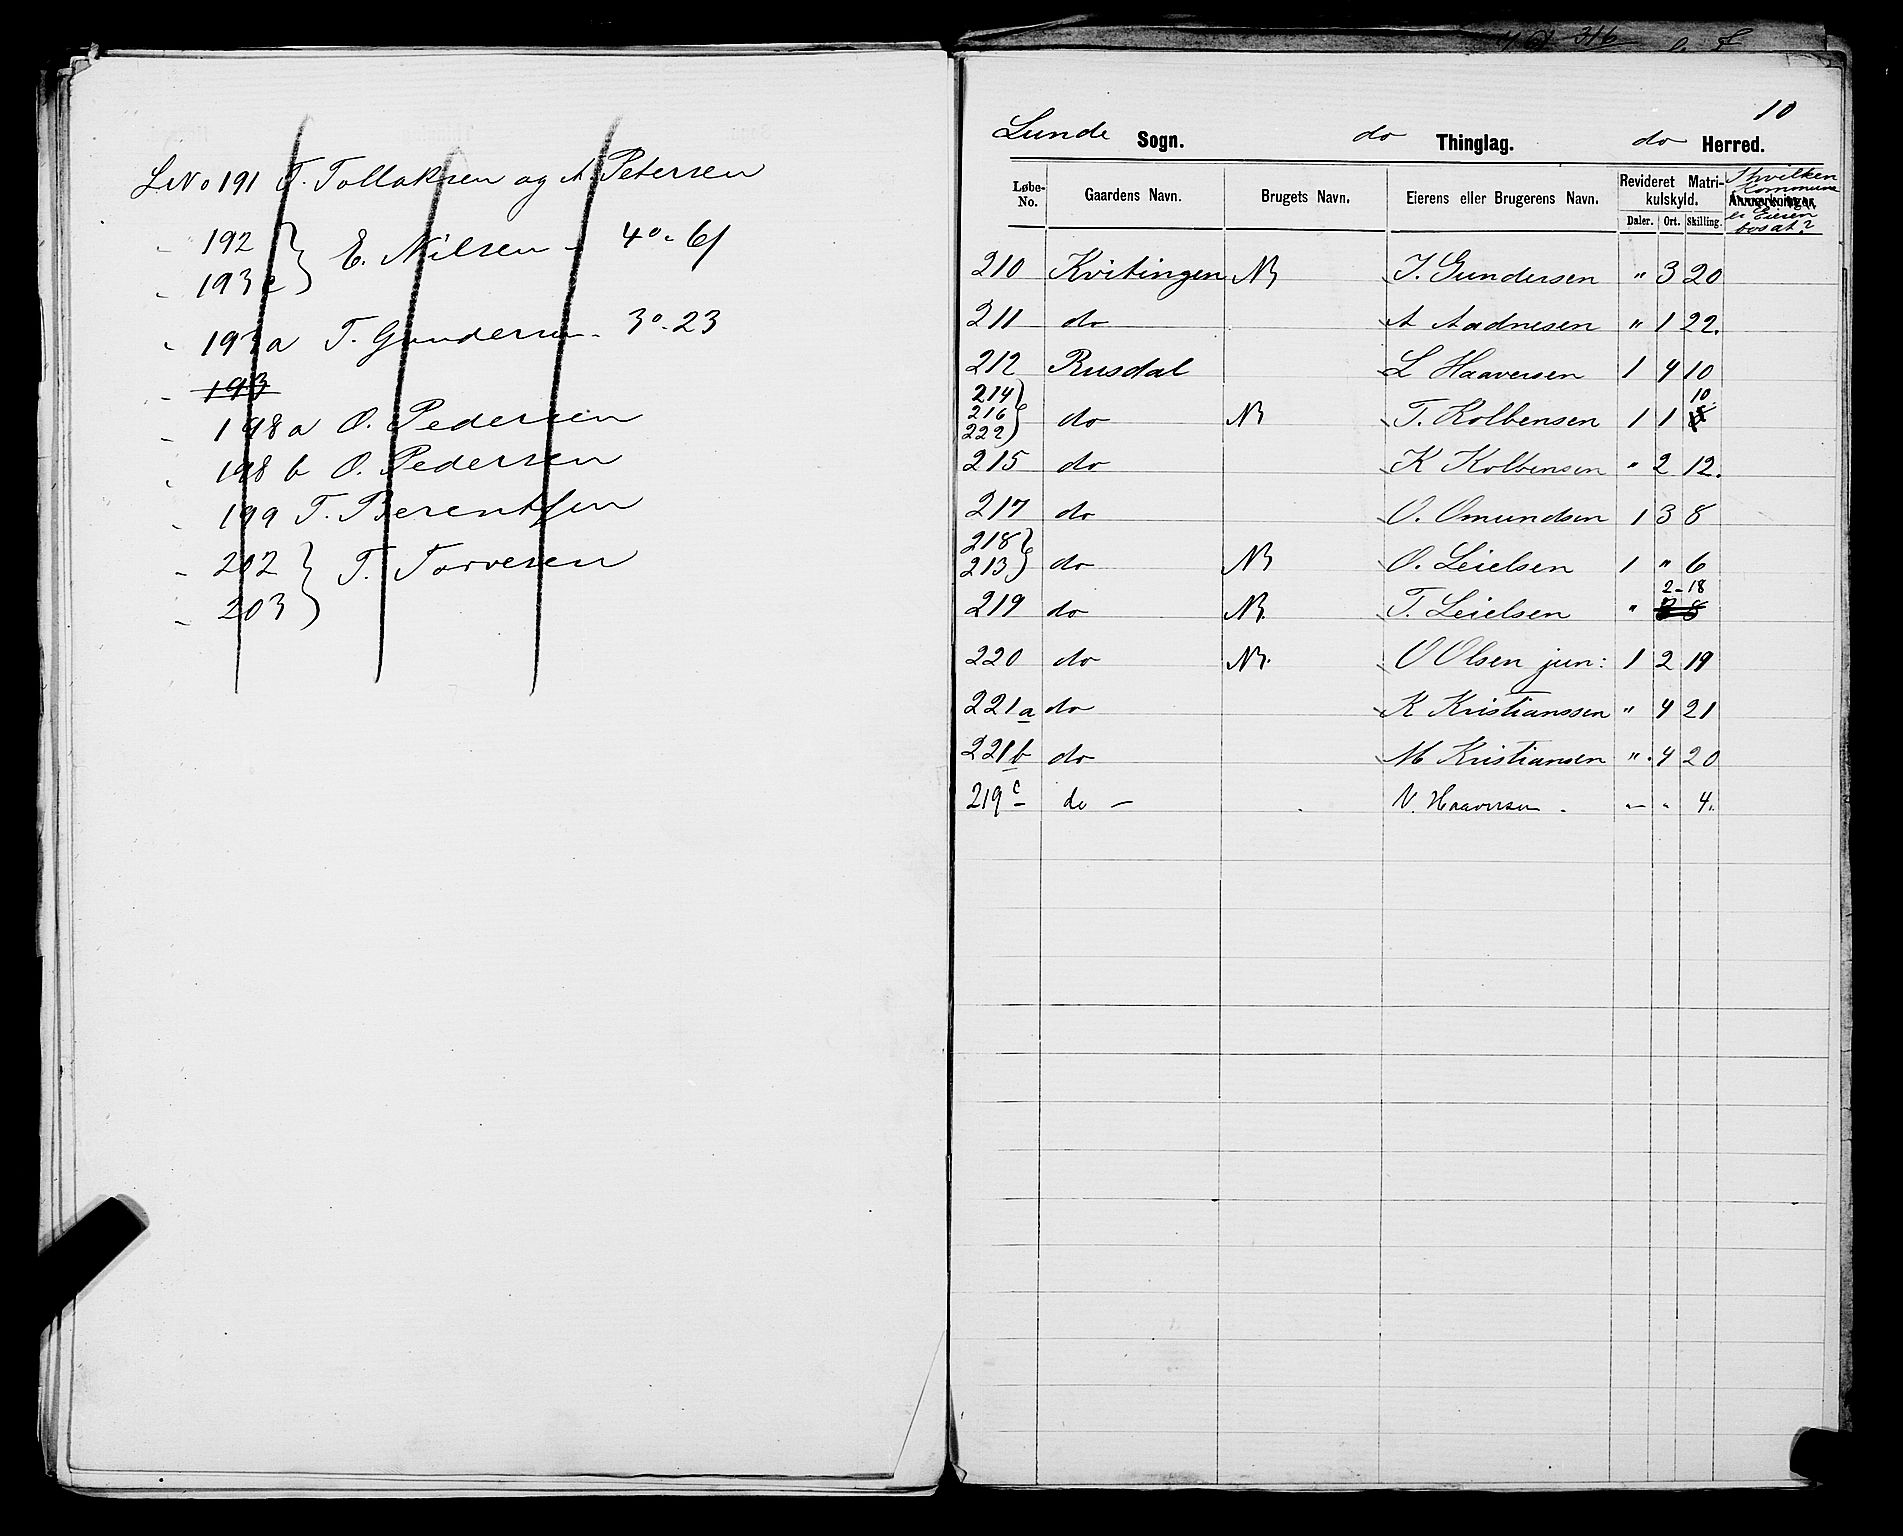 L No 191 T. Tollaksen og A. Petersen
" 192 } E. Nilsen - 4 o. 6 s
" 193 c }
" 193 a T. Gundersen - 3 o. 23
" 193
" 198 a O. Pedersen
" 198 b O. Pedersen
" 199 T. Berentsen
" 202 } T. Torvesen
" 203 }
316
10
Lunde Sogn. do Thinglag. do Herred.
Løbe-No. Gaardens Navn. Brugets Navn. Eierens eller Brugerens Navn. Revideret Matrikulskyld. Daler. Ort. Skilling. Anmerkninger. I hvilken Kommune er Eieren bosat?
210 Kvitingen NB J. Gundersen " 3 20
211 do A Aadnesen " 1 22.
212 Rusdal L Haaversen 1 4 10
214 216 222 } do NB T. Kolbensen 1 1 10.
215 do K Kolbensen " 2 12.
217 do O. Omundsen 1 3 8
218 213 } do NB O. Leielsen 1 " 6
219 do NB. T. Leielsen " 2-18
220 do NB. O Olsen jun: 1 2 19
221a do K Kristianssen " 4 21
221b do M Kristiansen " 4 20
219c - do - N. Haaversen - " " 4.